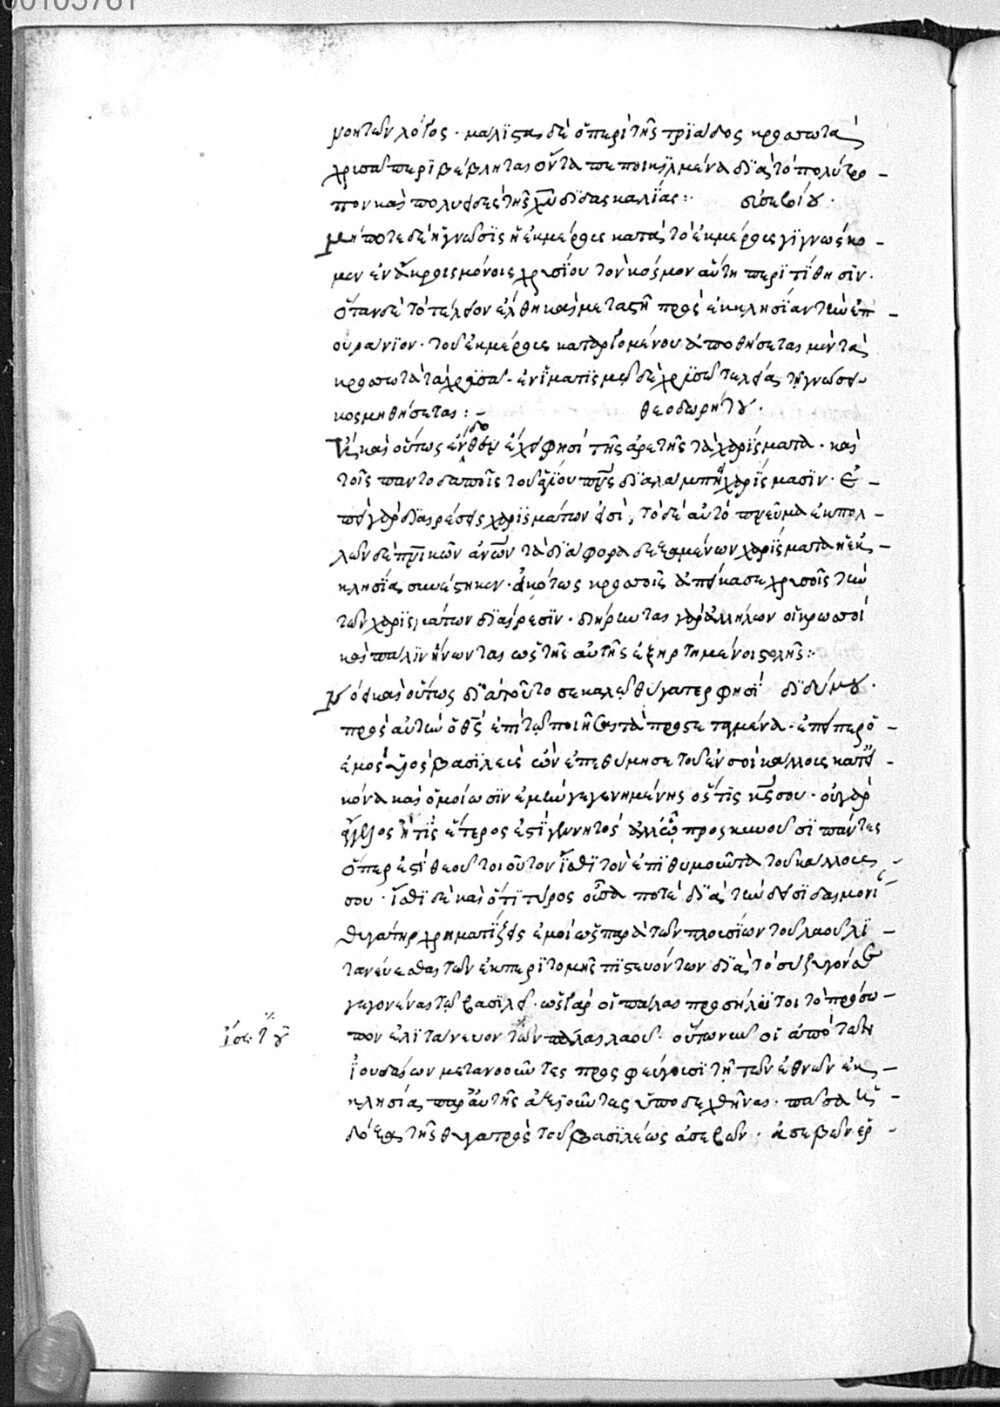 00105761
μονῶν λόγος · μάλιστα δὲ ὁ περὶ τῆς τριάδος κροσσωτὰ
χρυσᾶ περιβέβληται ὄντα πεποικιλμένα διὰ τὸ πολύτρο-
πον καὶ πολυειδὲς τῆς χυ διδασκαλίας :· εὐσεβίου ·
μήποτε δὲ ἡ γνῶσις ἡ ἐκ μέρους κατὰ τὸ ἐκ μέρους γιγνώσκο-
μεν ἐν ἄκροις μόνοις χρυσίου τὸν κόσμον αὐτῇ περιτίθησιν ·
ὅταν δὲ τὸ τέλειον ἔλθη καὶ μεταστῆ πρὸς ἐκκλησίαν τὴν ἐπ-
ουράνιον · τοῦ ἐκ μέρους καταργουμένου ἀποθήσεται μὲν τὰ
κροσσωτὰ τὰ χρυσᾶ · ἐν ἱματισμῷ δὲ χρυσῷ τελείας γνώσεως
κοσμηθήσεται :- θεοδωρήτου ·
καὶ οὕτως ἔνδοθεν ἔχει φησὶ τῆς ἀρετῆς τὰ χαρίσματα · καὶ
τοῖς παντοδαποῖς τοῦ ἁγίου πνς διαλάμπῃ χαρίσμασιν · ἐ-
πεὶ γὰρ διαιρέσεις χαρισμάτων εἰσὶ, τὸ δὲ αὐτὸ πνεῦμα ἐκ πολ-
λῶν δὲ πνικῶν ἀνων τὰ διάφορα δεξαμένων χαρίσματα ἡ ἐκ-
κλησία συνέστηκεν · εἰκότως κροσσοῖς ἀπείκασε χρυσοῖς τὴν
τῶν χαρισμάτων διαίρεσιν · διήρηνται γὰρ ἀλλήλων οἱ κροσσοὶ
καὶ πάλιν ἥνωνται ὡς τῆς αὐτῆς ἐξηρτημένοι στολῆς :·
καὶ οὕτως διὰ τοῦτό σε καλῶ θύγατερ φησὶ διδύμου ·
πρὸς αὐτὴν ὁ θς ἐπὶ τῷ ποιῆσαι τὰ προστεταγμένα · ἐπείπερ ὁ
ἐμὸς υἱὸς βασιλεὺς ὢν ἐπεθύμησε τοῦ ἐν σοὶ κάλλους κατ' εἰ-
κόνα καὶ ὁμοίωσιν ἐμὴν γεγενημένης ὅστις κς σου · οὐ γὰρ
ἄγγελος ἤ τις ἕτερός ἐστι γεννητὸς ἀλλ' ᾧ προσκυνοῦσι πάντες
ὅπερ ἐστὶ θεοῦ τοιοῦτον ἴσθι τὸν ἐπιθυμοῦντα τοῦ κάλλους
σου · ἴσθι δὲ καὶ ὅτι τύρος οὖσά ποτε διὰ τὴν δεισιδαιμονί
θυγάτηρ χρηματίζεις ἐμοὶ ὡς παρὰ τῶν πλουσίων τοῦ λαοῦ λι-
τανεύεσθαι τῶν ἐκ περιτομῆς πιστευόντων διὰ τὸ σύζυγόν σε
γεγονέναι τῷ βασιλεῖ · ὡς γὰρ οἱ πάλαι προσήλυτοι τὸ πρόσω-
πον ἐλιτάνευον τῶν πάλαι λαοῦ · οὕτω νῦν οἱ ἀπὸ τῶν
ἰουδαίων μετανοοῦντες προσφεύγουσι τῇ τῶν ἐθνῶν ἐκ-
κλησία παρ' αὐτῆς ἀξιοῦντες ὑποδεχθῆναι · πᾶσα ἡ
δόξα τῆς θυγατρὸς τοῦ βασιλέως ἐσεβών · ἐσεβὼν ἑρ-